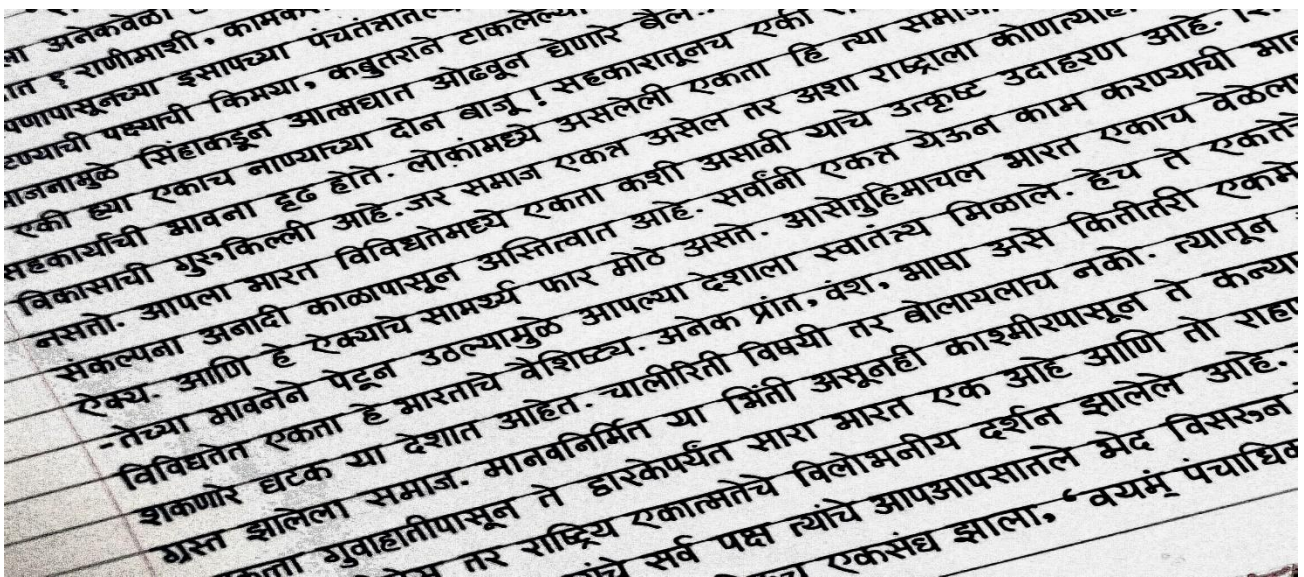 ला अनेकवेळा
१ राणीमाशी, कामकरी
पणापासूनच्या इसापच्या पंचतंत्रातल्या
टण्याची पक्ष्याची किमया, कबुतराने टाकलेल्या
भाजनामुळे सिंहाकडून आत्मघात ओढवून घेणारे बैल
एकी ह्या एकाच नाण्याच्या दोन बाजू! सहकारातूनच एकी
सहकार्याची भावना दृढ होते. लोकांमध्ये असलेली एकता हि त्या समाजा
विकासाची गुरुकिल्ली आहे. जर समाज एकत्र असेल तर अशा राष्ट्राला कोणत्याही
नसतो. आपला भारत विविधतेमध्ये एकता कशी असावी याचे उत्कृष्ट उदाहरण आहे.
संकल्पना अनादी काळापासून अस्तित्वात आहे. सर्वांनी एकत्र येऊन काम करण्याची भाव
ऐक्य. आणि हे ऐक्याचे सामर्थ्य फार मोठे असते. आसेतुहिमाचल भारत एकाच वेळेला
-तेच्या भावनेने पेटून उठल्यामुळे आपल्या देशाला स्वातंत्र्य मिळाले. हेच ते एकतेचे
विविधतेत एकता हे भारताचे वैशिष्ट्य. अनेक प्रांत, वंश, भाषा असे कितीतरी एकमे
शकणारे घटक या देशात आहेत. चालीरिती विषयी तर बोलायलाच नको. त्यातून
ग्रस्त झालेला समाज. मानवनिर्मित या भिंती असूनही काश्मीरपासून ते कन्या
गुवाहातीपासून ते द्वारकेपर्यंत सारा भारत एक आहे आणि तो राहा
तर राष्ट्रिय एकात्मतेचे विलोभनीय दर्शन झालेले आहे.
सर्व पक्ष त्यांचे आपआपसातले भेद विसरून
एकसंध झाला, ‘वयम् पंचाधिक